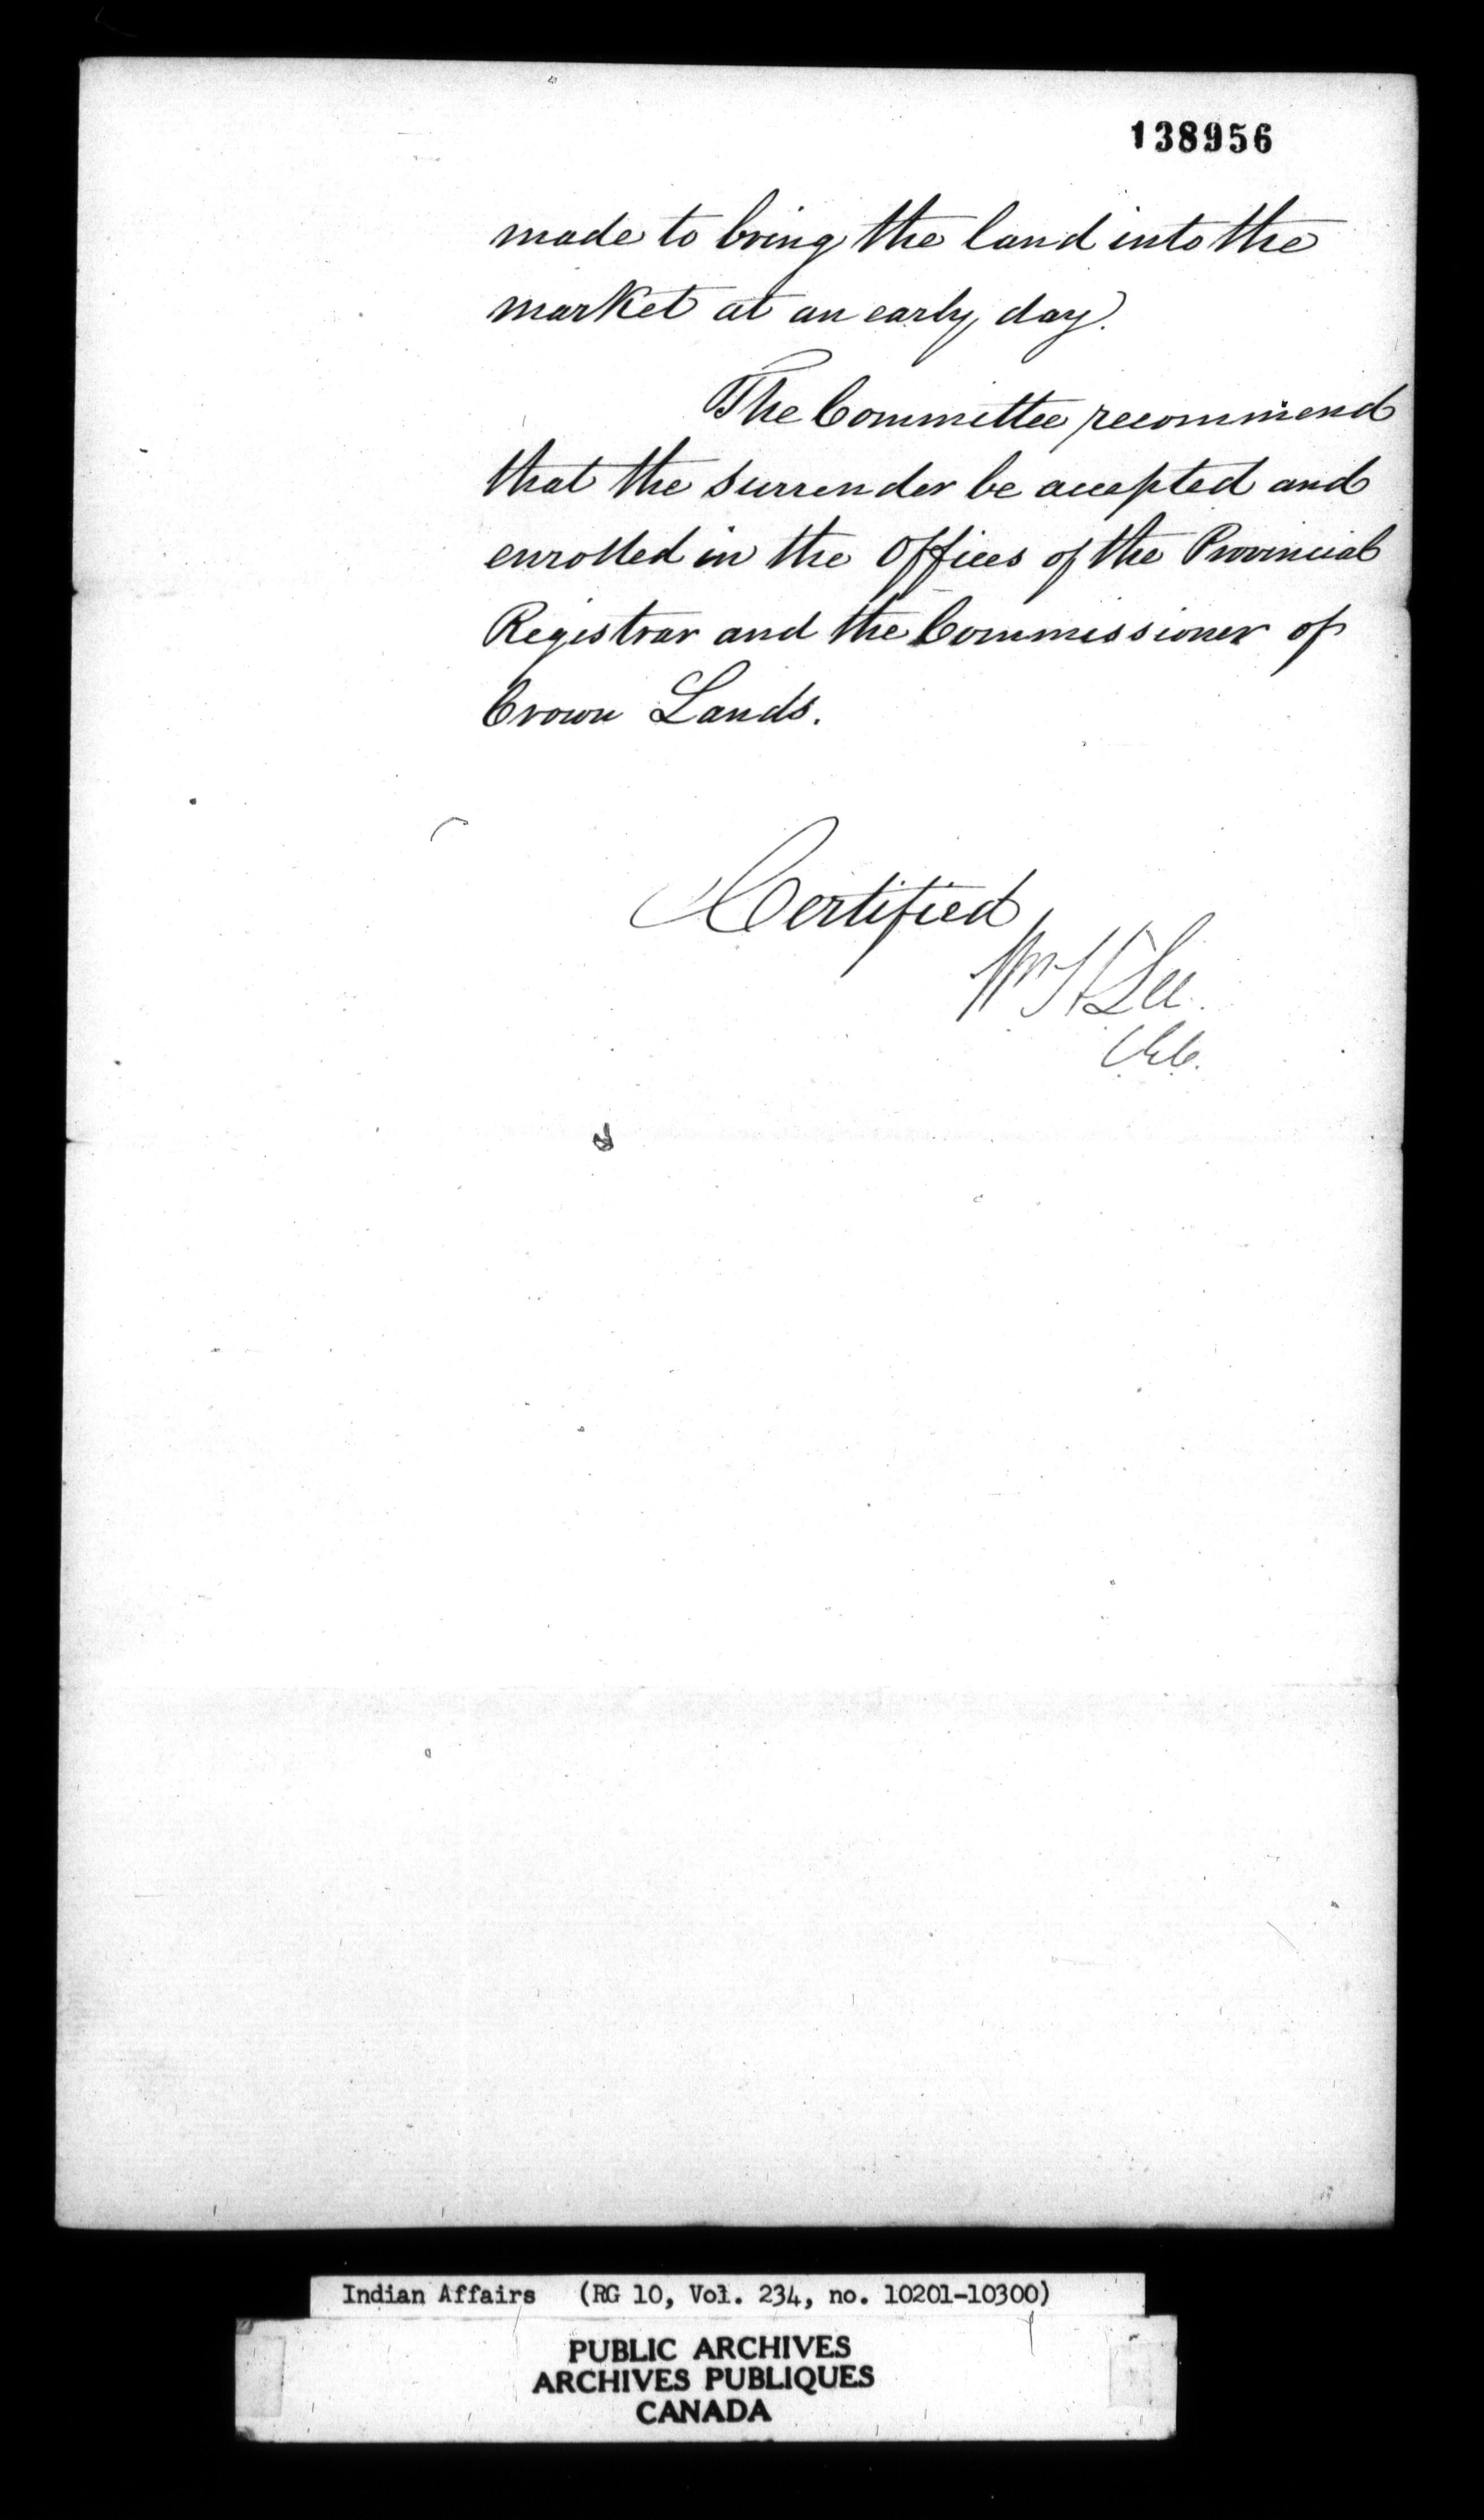 138956
made to bring the land into the
market at an early day.
The Committee recommend
that the surrender be accepted and
enrolled in the Offices of the Provincial
Registrar and the Commissioner of
Crown Lands.
Certified
Wm H Lee
C.E.C.
Indian Affairs (RG 10, Vol. 234, no. 10201-10300)
PUBLIC ARCHIVES
ARCHIVES PUBLIQUES
CANADA